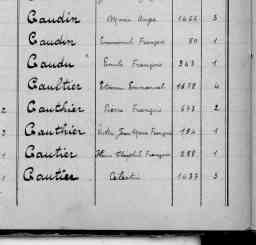 Gaudin Marie Ange 1466 3
Gaudin Emmanuel François 80 1
Gaudu Emile François 343 1
Gaultier Etienne Emmanuel 1678 4
2 Gauthier Pierre François 673 2
3 Gauthier Jean Marie François 184 1
1 Gautier Théophile François 288 1
1 Gautier Célestin 1437 3